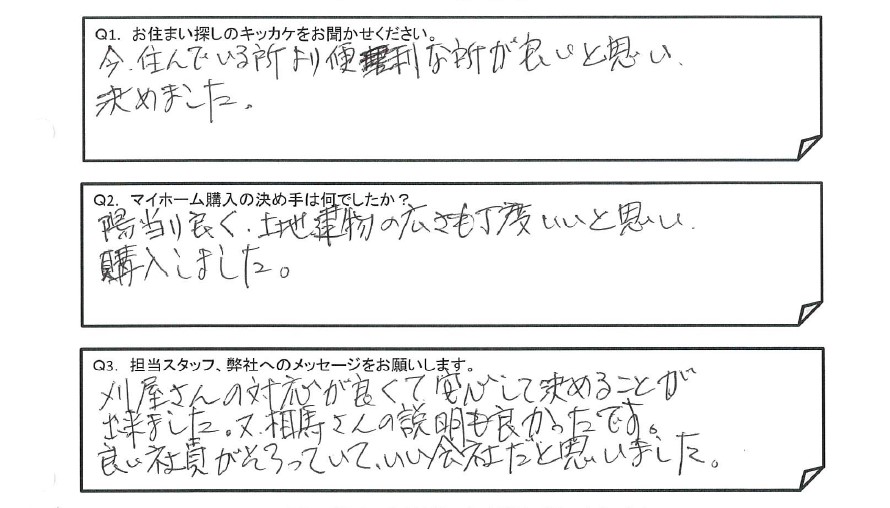 Q1. お住まい探しのキッカケをお聞かせください。
今、住んでいる所より便利な所が良いと思い、
決めました。
Q2. マイホーム購入の決め手は何でしたか？
陽当り良く、土地建物の広さも丁度いいと思い、
購入しました。
Q3. 担当スタッフ、弊社へのメッセージをお願いします。
刈屋さんの対応が良くて安心して決めることが
出来ました。又、相馬さんの説明も良かったです。
良い社員がそろっていて、いい会社だと思いました。